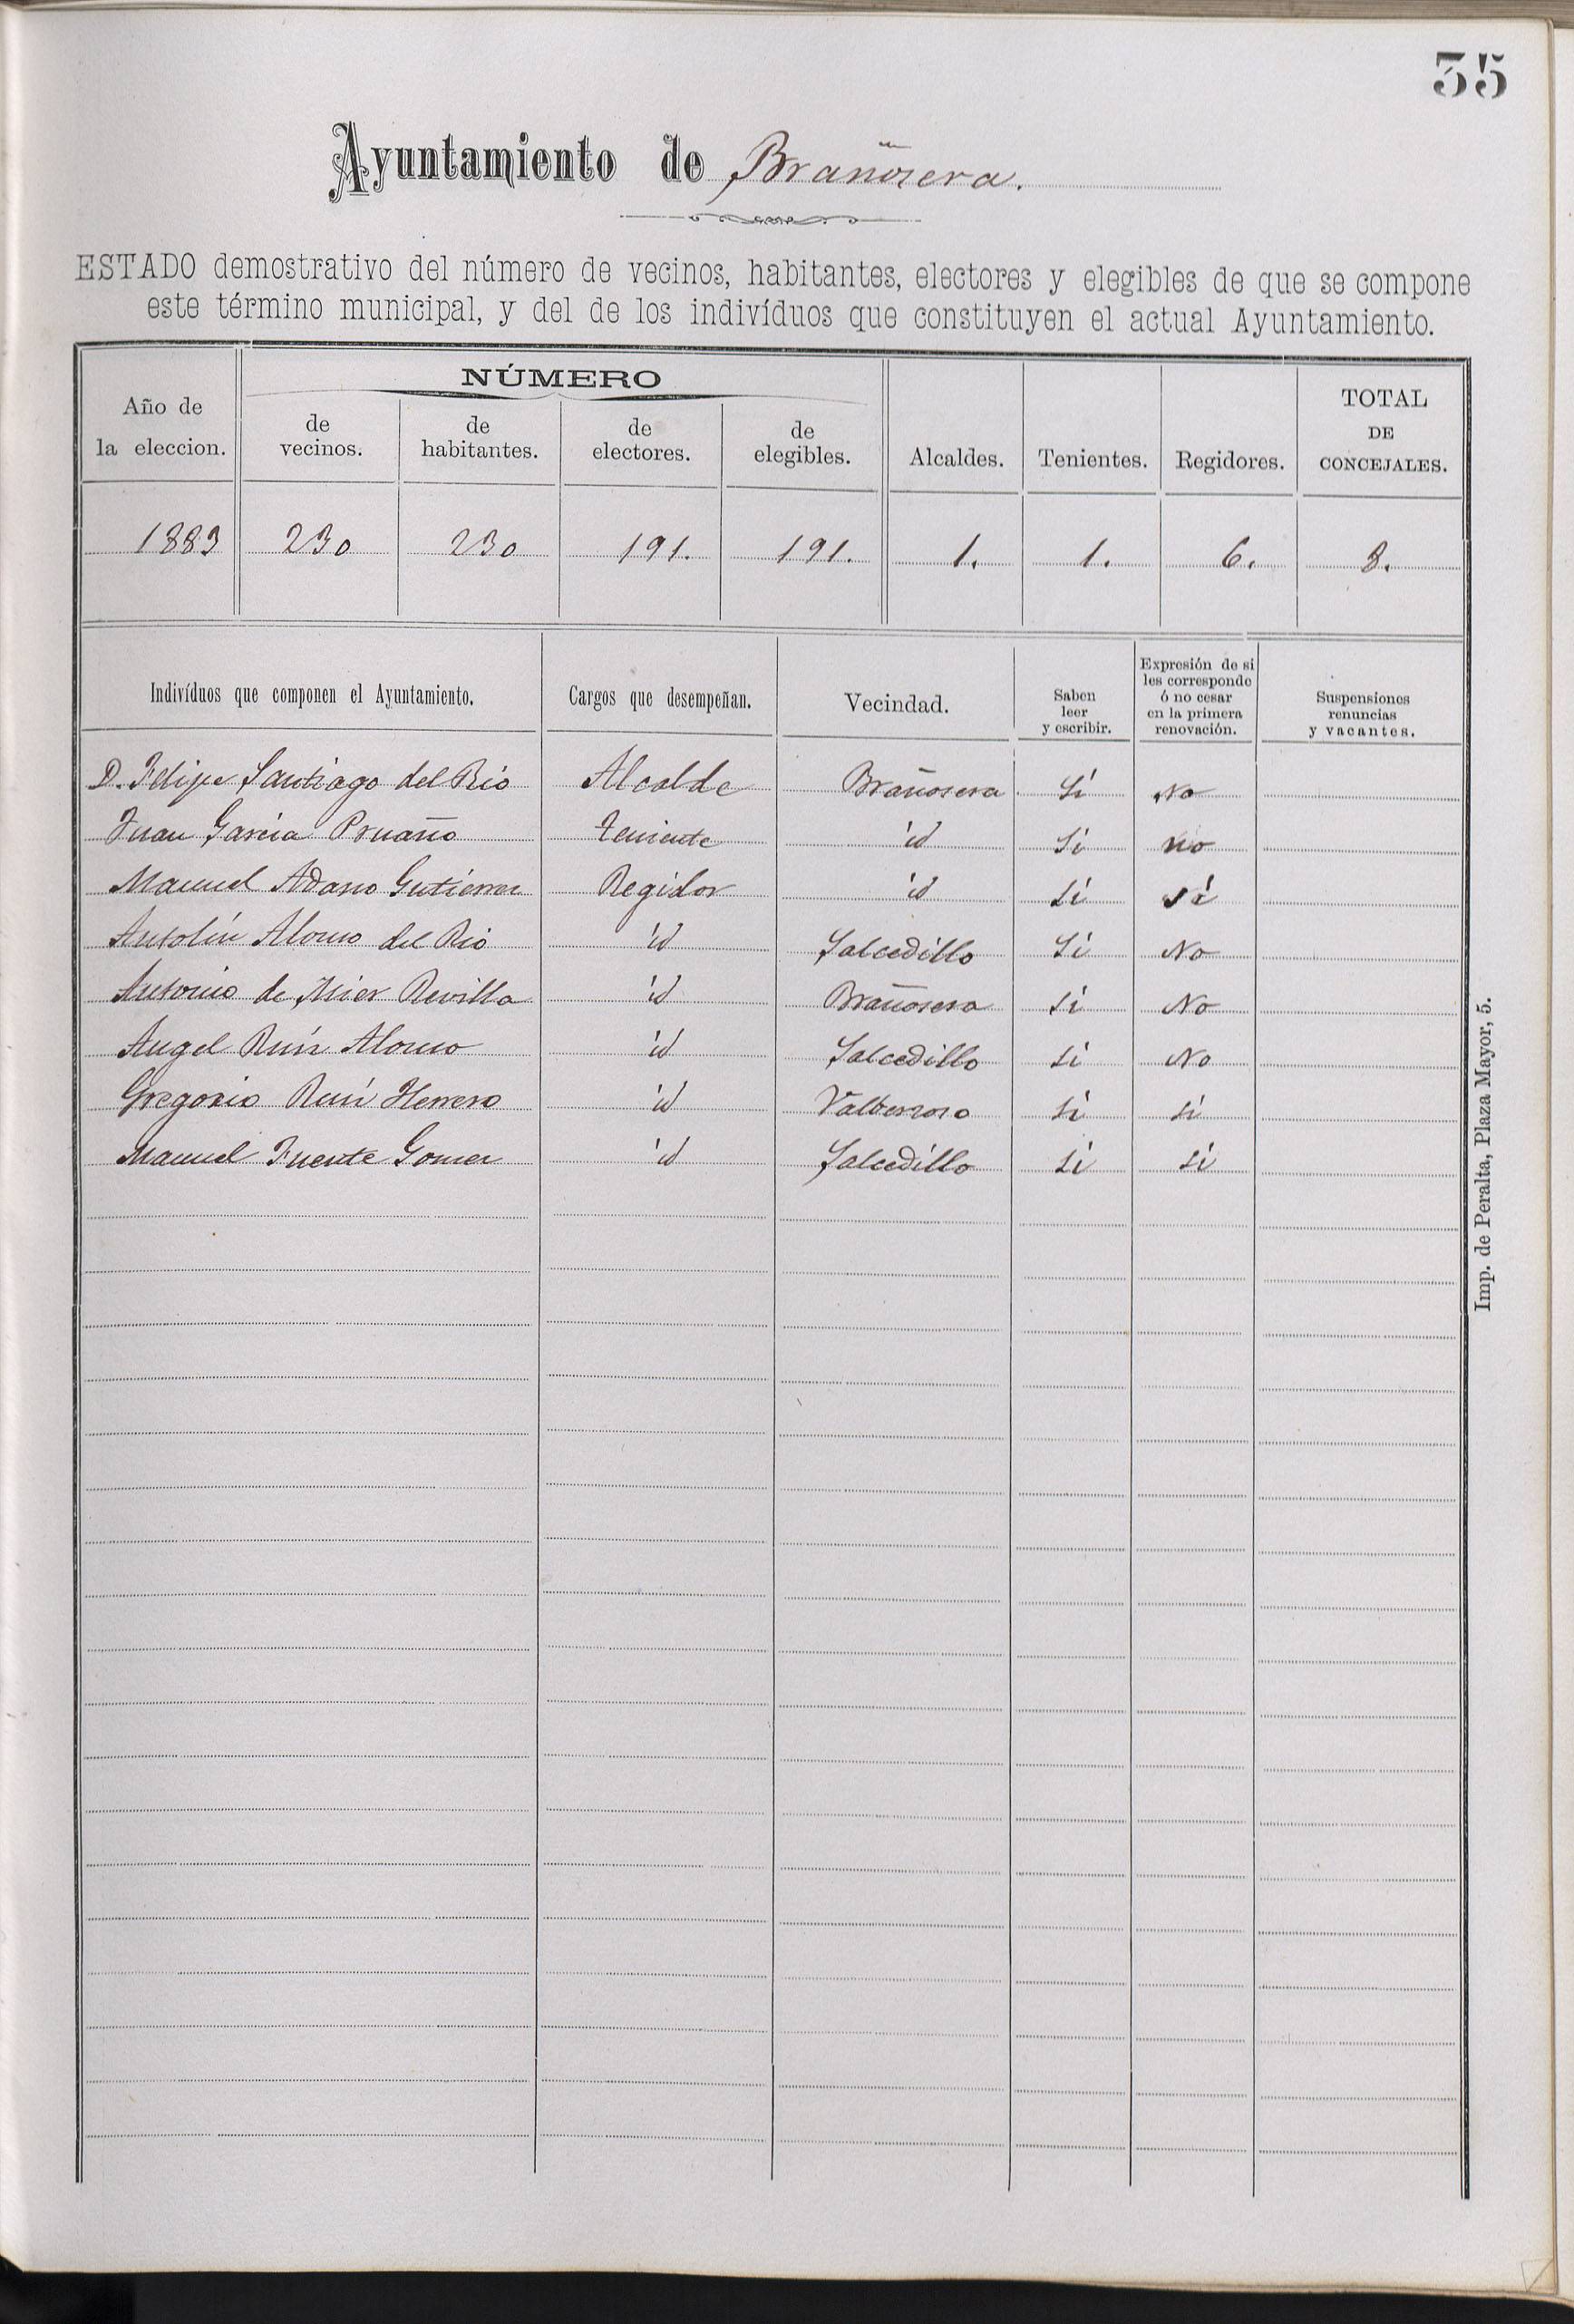 35
Ayuntamiento de Brañosera.
ESTADO demostrativo del número de vecinos, habitantes, electores y elegibles de que se compone
este término municipal, y del de los indivíduos que constituyen el actual Ayuntamiento.
NÚMERO
Año de
la eleccion.
de
vecinos.
de
habitantes.
de
electores.
de
elegibles.
Alcaldes.
Tenientes.
Regidores.
TOTAL
DE
CONCEJALES.
1883 230 230 191. 191. 1. 1. 6. 8.
Indivíduos que componen el Ayuntamiento.
Cargos que desempeñan.
Vecindad.
Saben
leer
y escribir.
Expresión de si
les corresponde
ó no cesar
en la primera
renovación.
Suspensiones
renuncias
y vacantes.
D. Felipe Santiago del Rio Alcalde Brañosera Sí No
Juan Garcia Teniente id Sí no
Manuel Gutierrez Regidor id Sí sí
Antolín Alonso del Rio id Salcedillo Sí No
Antonio de Mier Revilla id Brañosera Sí No
Angel Ruiz Alonso id Salcedillo Sí No
Gregorio Ruiz Herrero id Valberzoso Sí si
Manuel Fuente Gomez id Salcedillo Sí Sí
Imp. de Peralta, Plaza Mayor, 5.